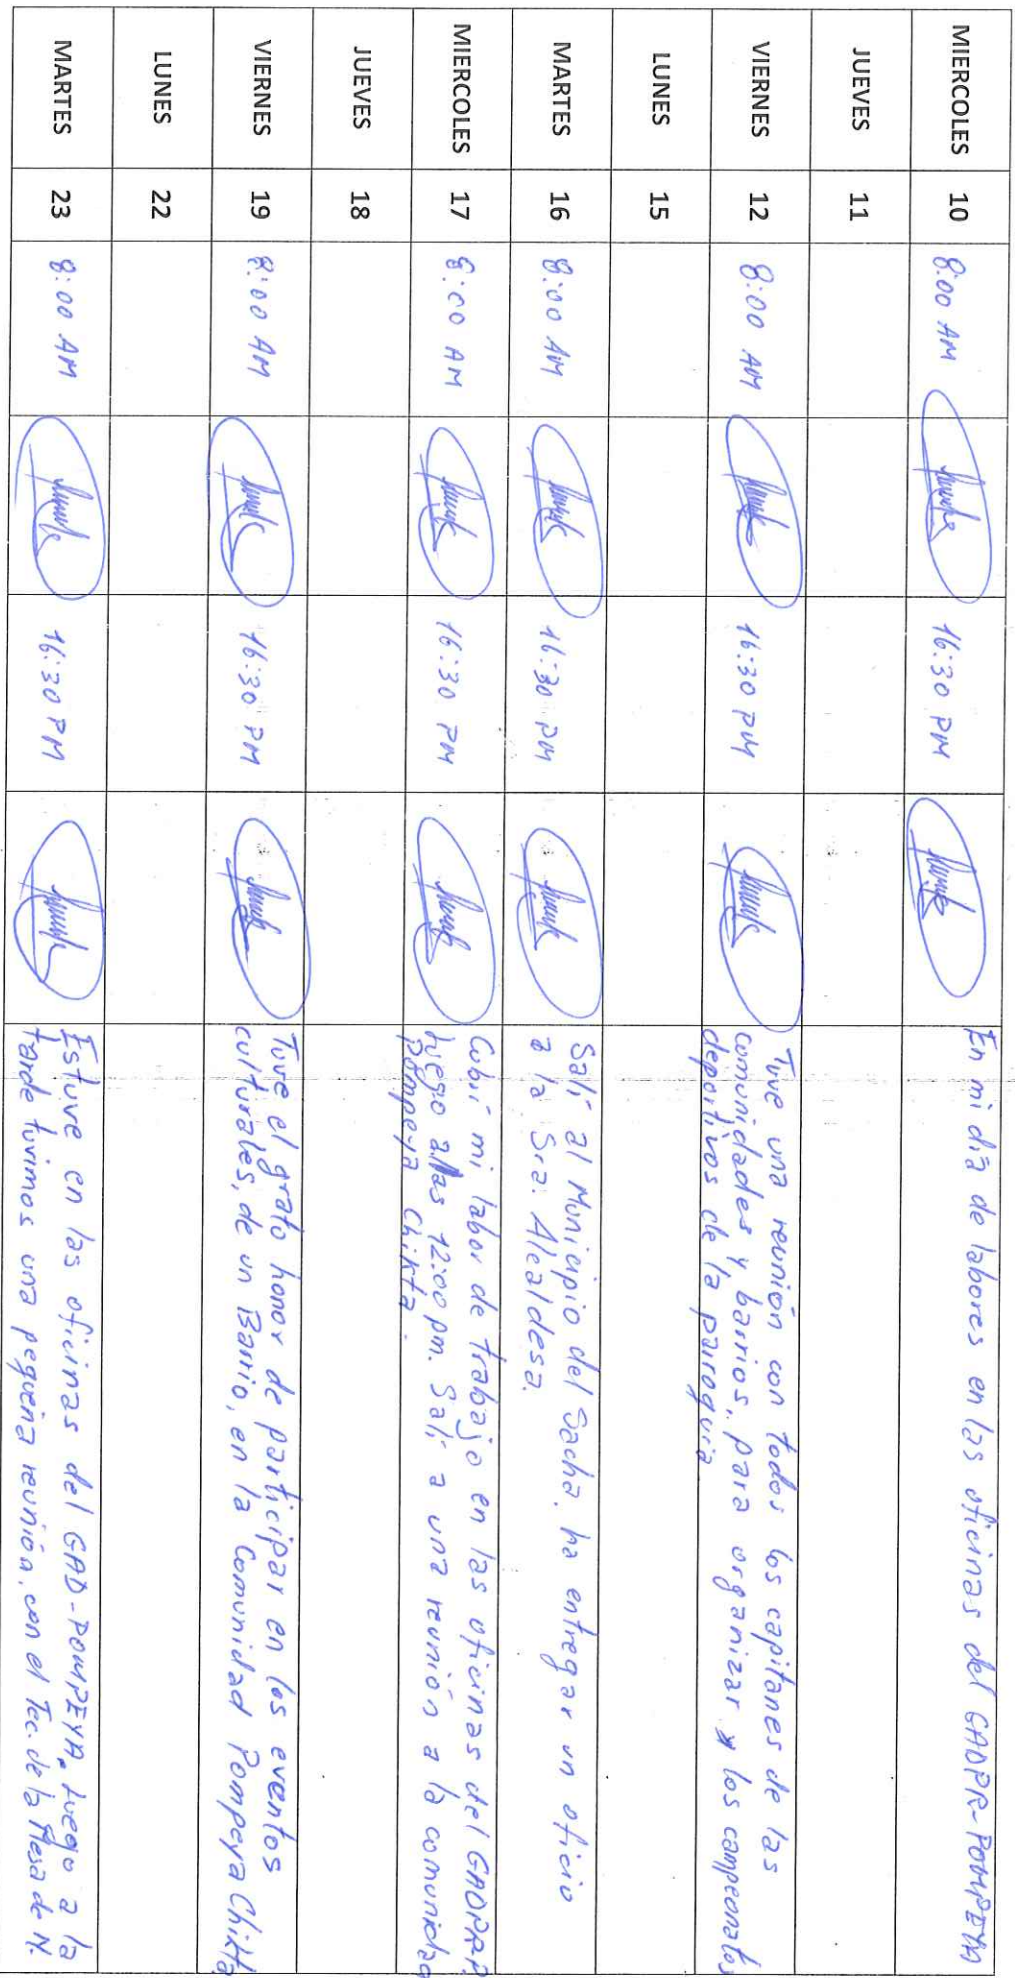 MIERCOLES 10 8:00 AM 16:30 PM En mi día de labores en las oficinas del GADPR-POMPEYA
JUEVES 11
VIERNES 12 8:00 AM 16:30 PM Tuve una reunión con todos los capitanes de las
comunidades y barrios, para organizar los campeonatos
deportivos de la parroquia
LUNES 15
MARTES 16 8:00 AM 16:30 PM Salí al Municipio del Sacha, ha entregar un oficio
a la Sra. Alcaldesa.
MIERCOLES 17 8:00 AM 16:30 PM Cubrí mi labor de trabajo en las oficinas del GADPRP.
luego a las 12:00 pm. Salí a una reunión a la comunidad
Pompeya Chikta.
JUEVES 18
VIERNES 19 8:00 AM 16:30 PM Tuve el grato honor de participar en los eventos
culturales, de un Barrio, en la Comunidad Pompeya Chikta
LUNES 22
MARTES 23 8:00 AM 16:30 PM Estuve en las oficinas del GAD-POMPEYA, luego a la
tarde tuvimos una pequeña reunión, con el Tec. de la Mesa de N.